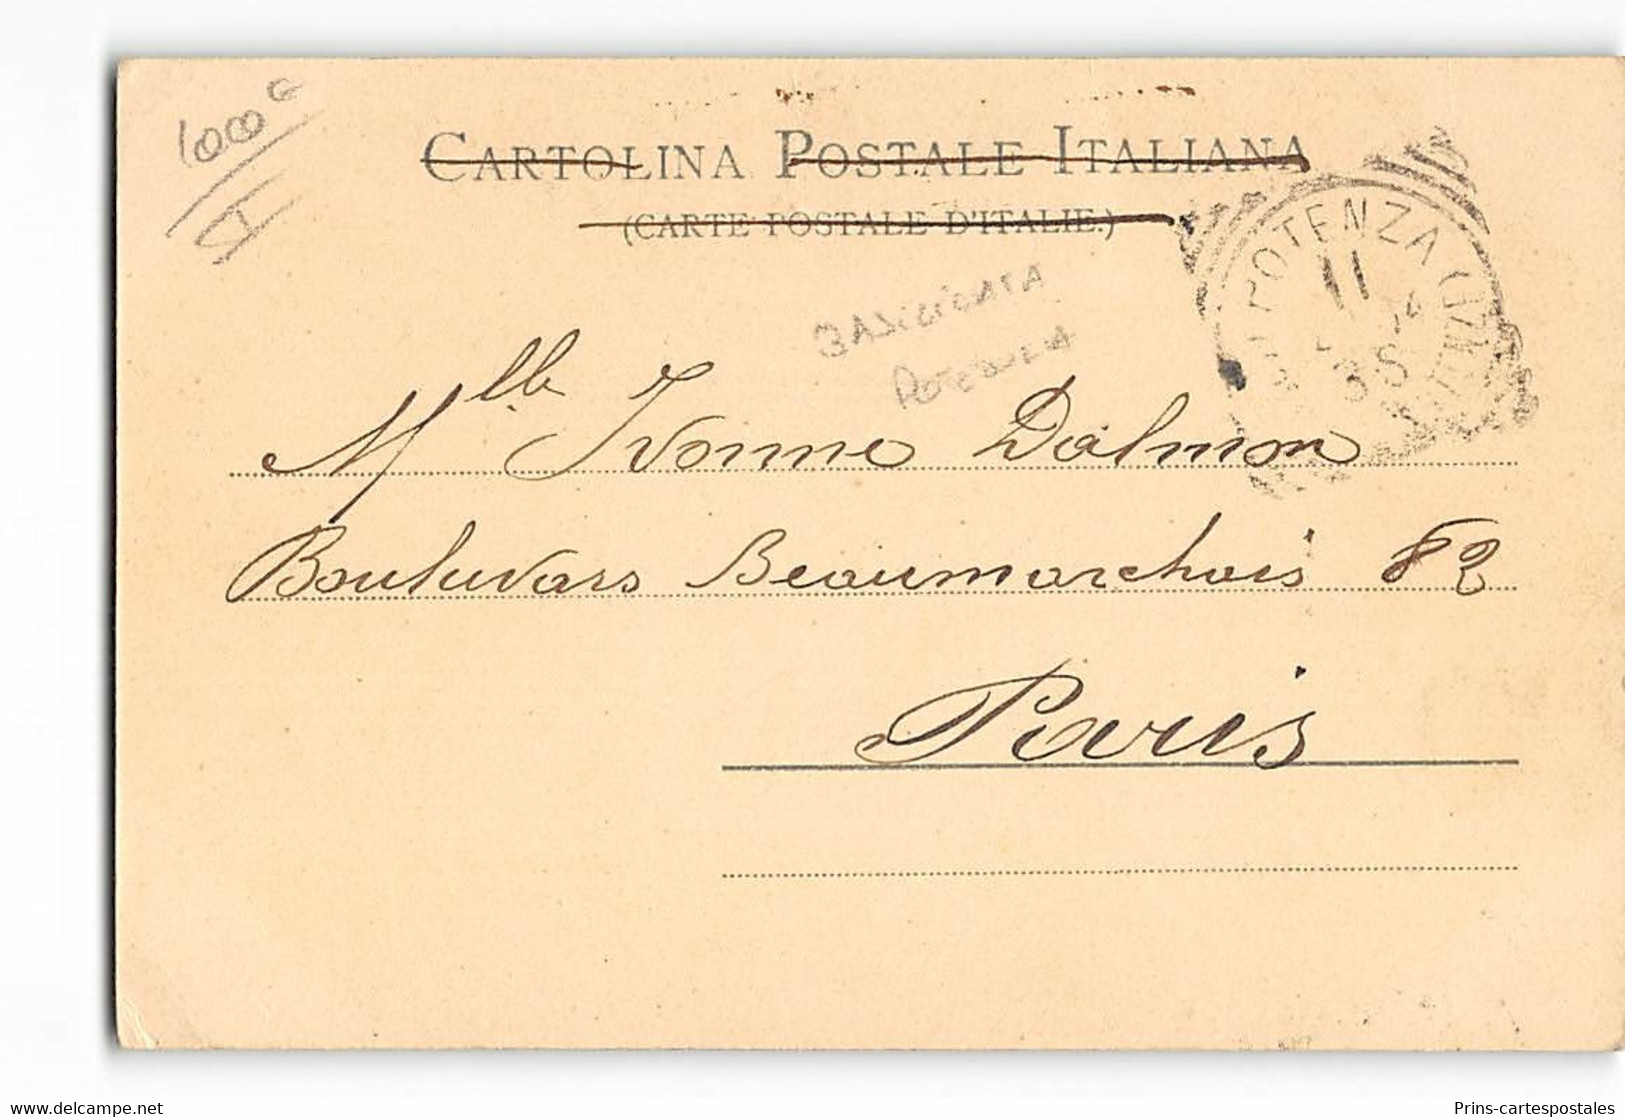 1000 G
CARTOLINA POSTALE ITALIANA
(CARTE POSTALE D'ITALIE.)
POTENZA
11
3 S
BASILICATA
Potenza
Mlle Ivonne Dalmon
Boulevars Beaumarchais 82
Paris
www.delcampe.net
Prins-cartespostales